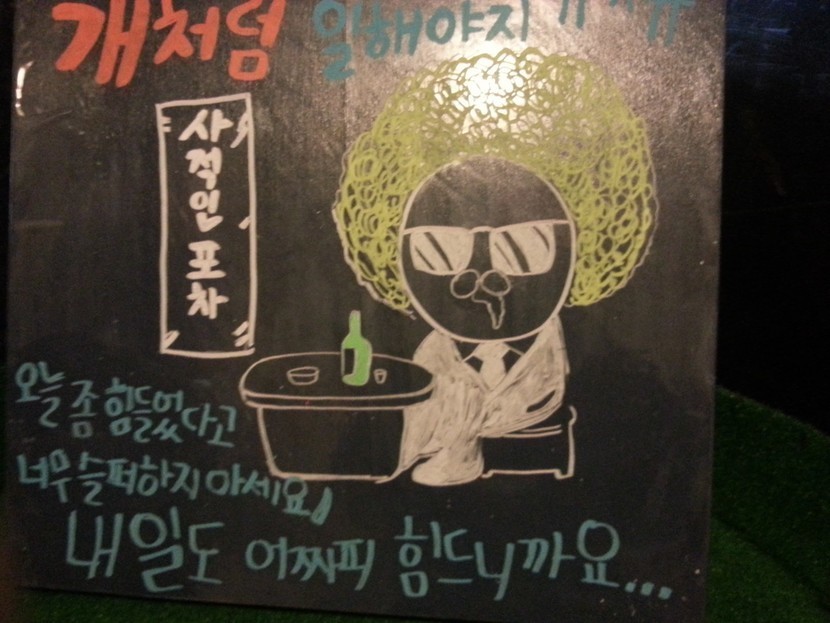 개처럼 일해야지 ㅠㅠ
사적인 포차
오늘 좀 힘들었다고
너무 슬퍼하지 마세요,
내일도 어짜피 힘드니까요...